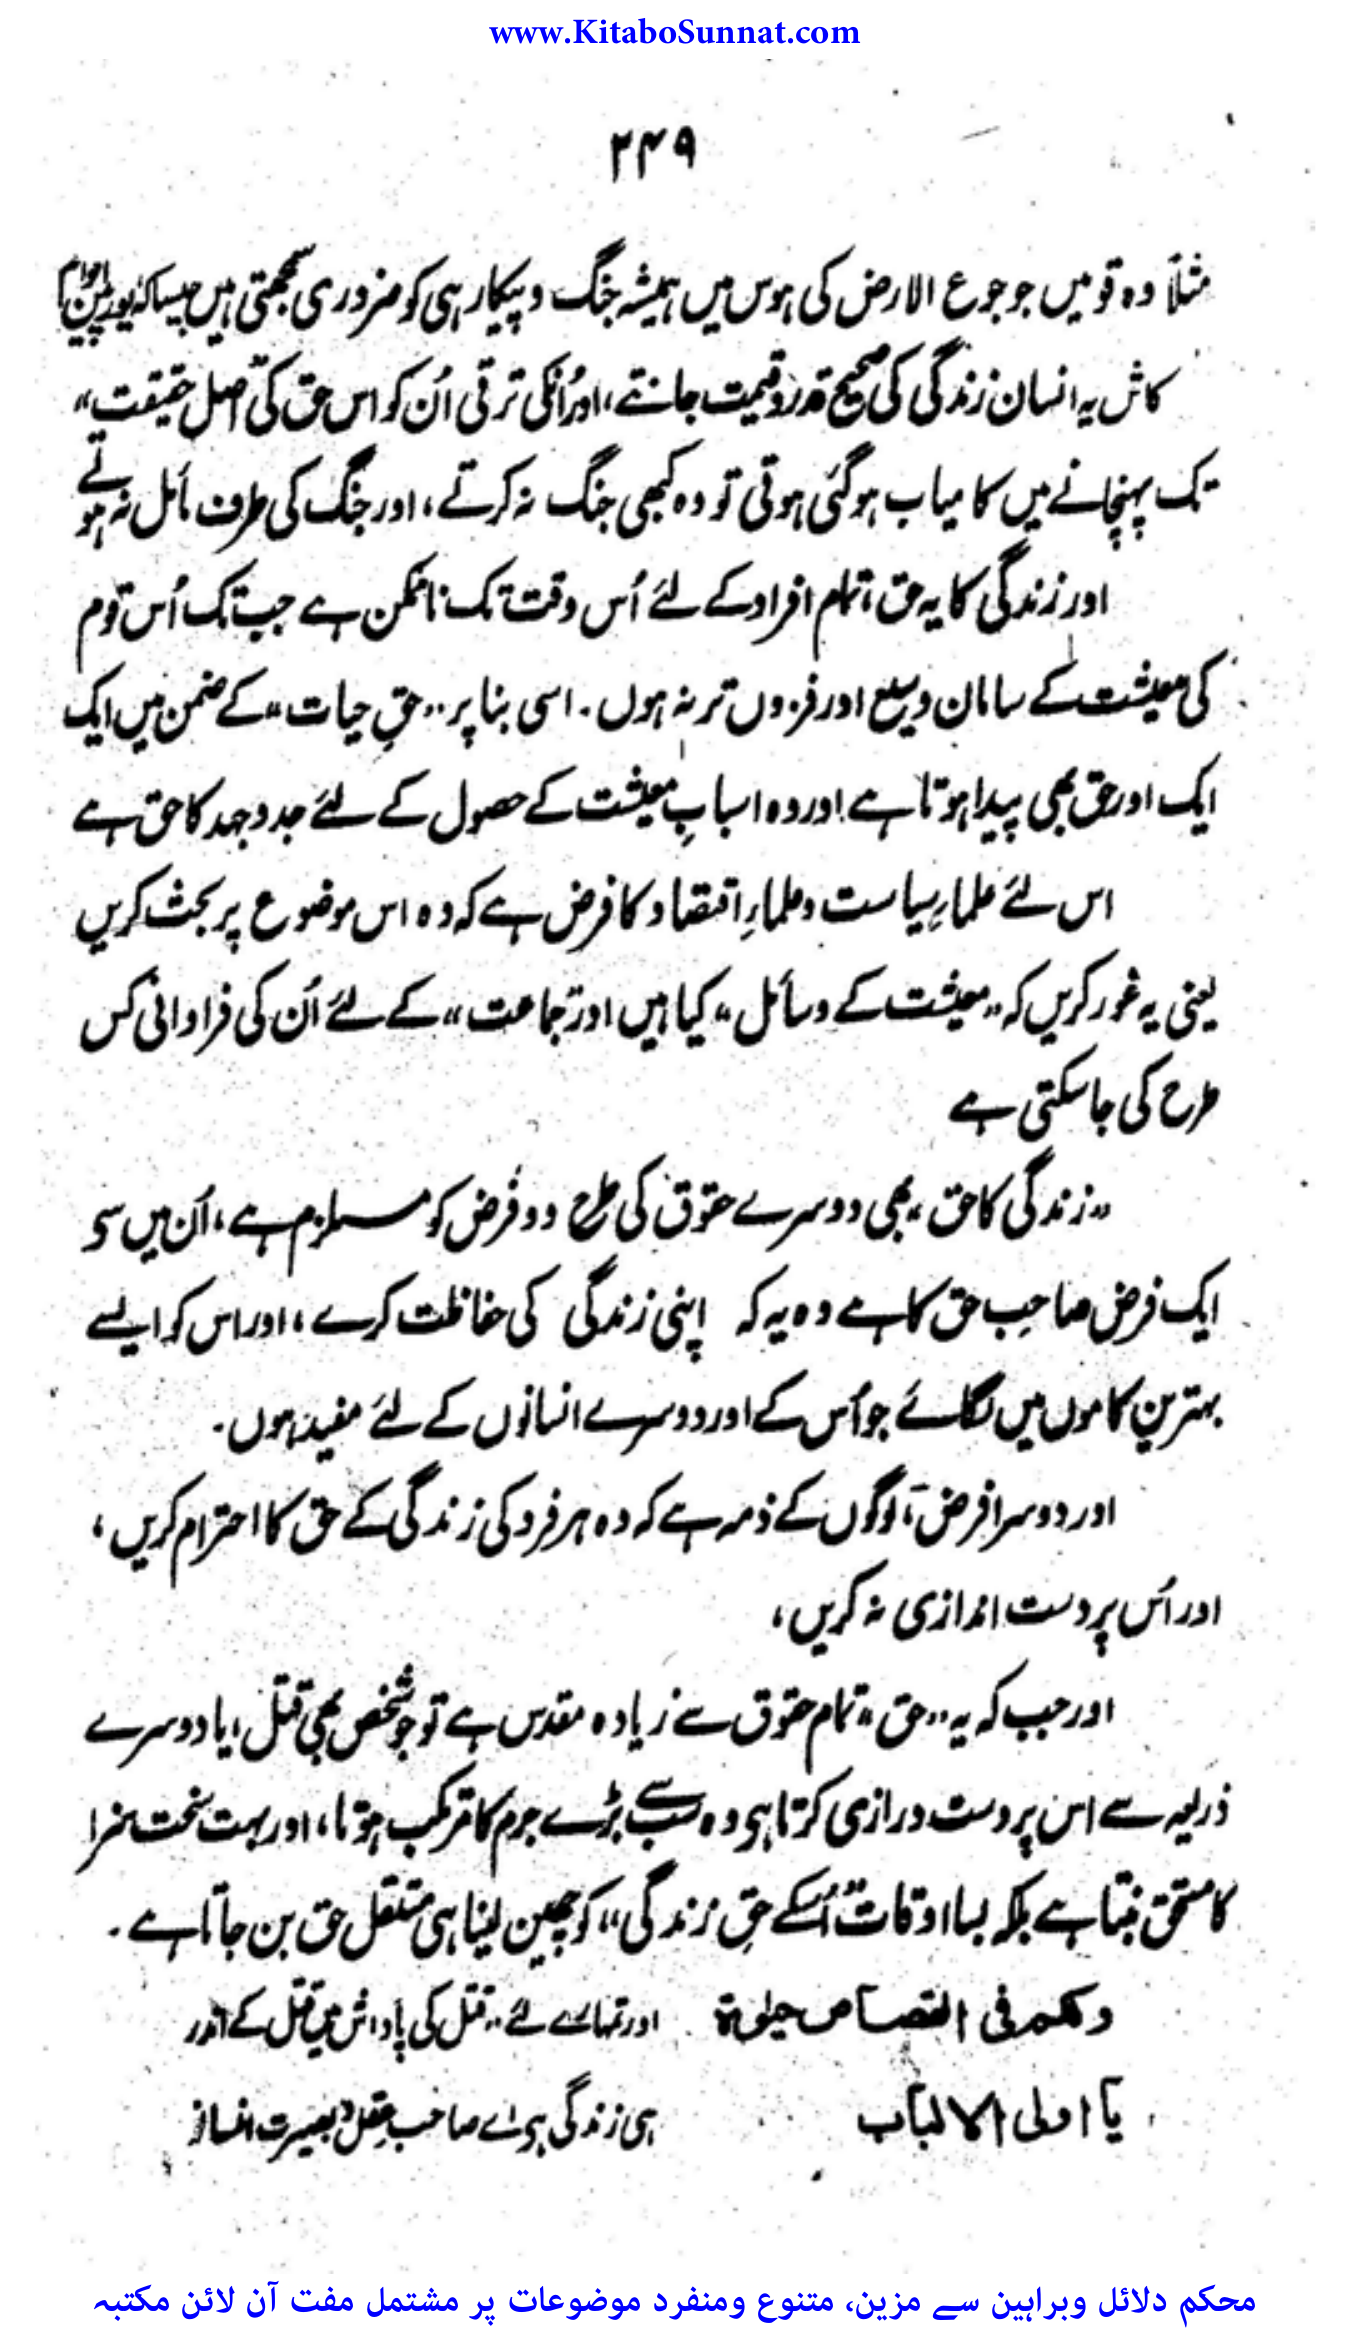 www.KitaboSunnat.com
۲۴۹
مثلاً وہ قومیں جو جوع الارض کی ہوس میں ہمیشہ جنگ و پیکار ہی کو ضروری سمجھتی ہیں جیساکہ یورپین اقوام
کاش یہ انسان زندگی کی صحیح قدر وقیمت جانتے، اور اُنکی ترقی اُن کو اس حق کی اصل حقیقت،،
تک پہنچانے میں کامیاب ہوگئی ہوتی تو وہ کبھی جنگ نہ کرتے، اور جنگ کی طرف مأل نہ ہوتے
اور زندگی کا یہ حق، تمام افراد کے لئے اُس وقت تک ناممکن ہے جب تک اُس قوم
کی معیشت کے سامان وسیع اور فزوں تر نہ ہوں. اسی بنا پر ،،حقِ حیات،، کے ضمن میں ایک
ایک اور حق بھی پیدا ہوتا ہے اور وہ اسبابِ معیشت کے حصول کے لئے جدوجہد کا حق ہے
اس لئے علماءِ سیاست و علماءِ اقتصاد کا فرض ہے کہ وہ اس موضوع پر بحث کریں
یعنی یہ غور کریں کہ ،،معیشت کے وسائل،، کیا ہیں اور جماعت،، کے لئے اُن کی فراوانی کس
طرح کی جاسکتی ہے
،،زندگی کا حق، بھی دوسرے حقوق کی طرح دو فرض کو مستلزم ہے، اُن میں سی
ایک فرض صاحبِ حق کا ہے وہ یہ کہ اپنی زندگی کی حفاظت کرے، اور اس کو ایسے
بہترین کاموں میں لگائے جو اُس کے اور دوسرے انسانوں کے لئے مفید ہوں.
اور دوسرا فرض، لوگوں کے ذمہ ہے کہ وہ ہر فرد کی زندگی کے حق کا احترام کریں،
اور اُس پر دست اندازی نہ کریں،
اور جب کہ یہ ،،حق،، تمام حقوق سے زیادہ مقدس ہے تو جو شخص بھی قتل، یا دوسرے
ذریعہ سے اس پر دست درازی کرتا ہی وہ سب سے بڑے جرم کا مرتکب ہوتا، اور بہت سخت سزا
کا مستحق بنتا ہے بلکہ بسا اوقات اُسکے حقِ زندگی،، کو چھین لینا ہی مستقل حق بن جاتا ہے.
ولکم فی القصاص حیٰوۃ اور تمہارے لئے ،،قتل کی پاداش میں قتل کے اندر
یا اولی الالباب ہی زندگی ہی اے صاحبِ عقل و بصیرت انسانو
محکم دلائل وبراہین سے مزین، متنوع ومنفرد موضوعات پر مشتمل مفت آن لائن مکتبہ